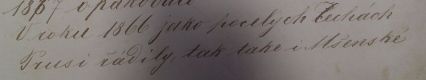 1867 opakovali
V roku 1866 jako po celých Čechách
Prusi řádily, tak také i Mšenské